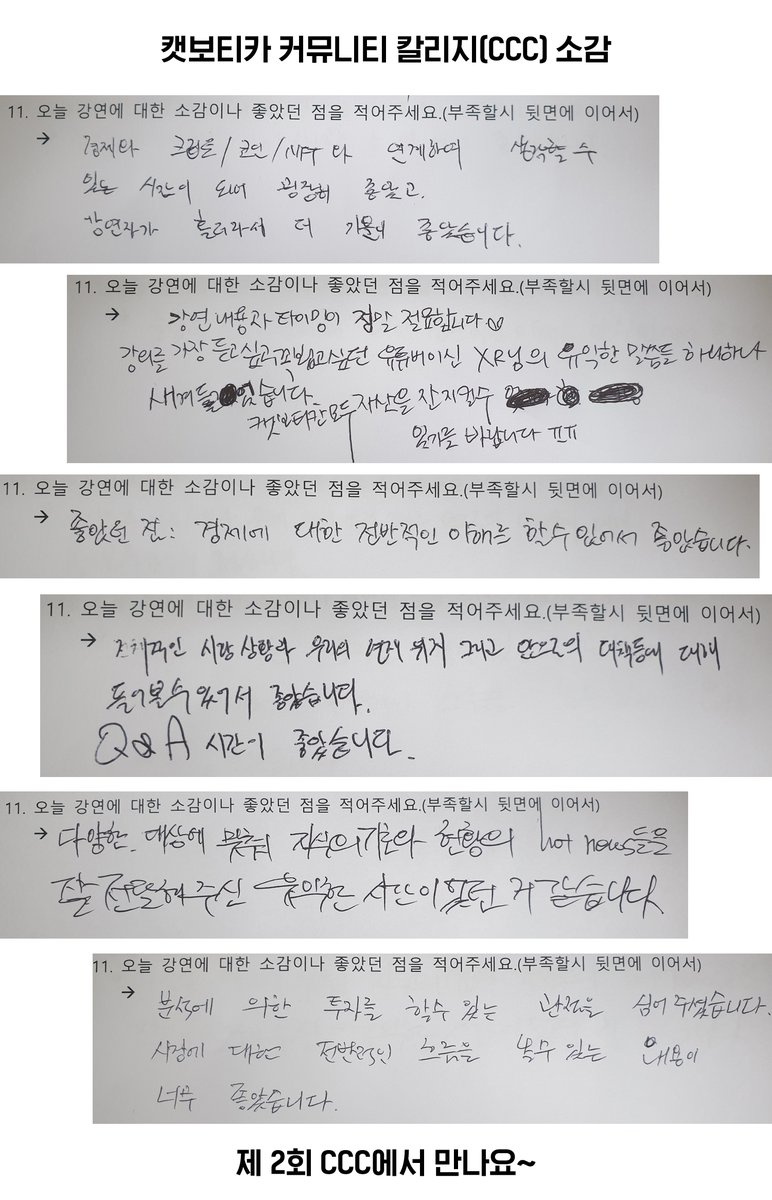 캣보티카 커뮤니티 칼리지(CCC) 소감
11. 오늘 강연에 대한 소감이나 좋았던 점을 적어주세요.(부족할시 뒷면에 이어서)
→ 경제와 크립토/코인/NFT와 연계하여 생각할 수
있는 시간이 되어 굉장히 좋았고.
강연자가 훌륭해서 더 기분이 좋았습니다.
11. 오늘 강연에 대한 소감이나 좋았던 점을 적어주세요.(부족할시 뒷면에 이어서)
→ 강연 내용과 타이밍이 정말 절묘합니다♡
강의를 가장 듣고싶고 뵙고싶던 유튜버이신 XR님의 유익한 말씀들 하나하나
새겨들었습니다.
캣보티칸 모두 재산을 잘 지킬수
있기를 바랍니다 ㅠㅠ
11. 오늘 강연에 대한 소감이나 좋았던 점을 적어주세요.(부족할시 뒷면에 이어서)
→ 좋았던 점: 경제에 대한 전반적인 이해를 할수 있어서 좋았습니다.
11. 오늘 강연에 대한 소감이나 좋았던 점을 적어주세요.(부족할시 뒷면에 이어서)
→ 전체적인 시장 상황과 우리의 현재 위치 그리고 앞으로의 대책등에 대해
들어볼수 있어서 좋았습니다.
Q&A 시간이 좋았습니다.
11. 오늘 강연에 대한 소감이나 좋았던 점을 적어주세요.(부족할시 뒷면에 이어서)
→ 다양한 대상에 맞춰 지식의 기초와 현황의 hot news들을
잘 전달해주신 유익한 시간이었던 거 같습니다
11. 오늘 강연에 대한 소감이나 좋았던 점을 적어주세요.(부족할시 뒷면에 이어서)
→ 분석에 의한 투자를 할수 있는 관점을 심어 주셨습니다.
시장에 대한 전반적인 흐름을 볼수 있는 내용이
너무 좋았습니다.
제 2회 CCC에서 만나요~